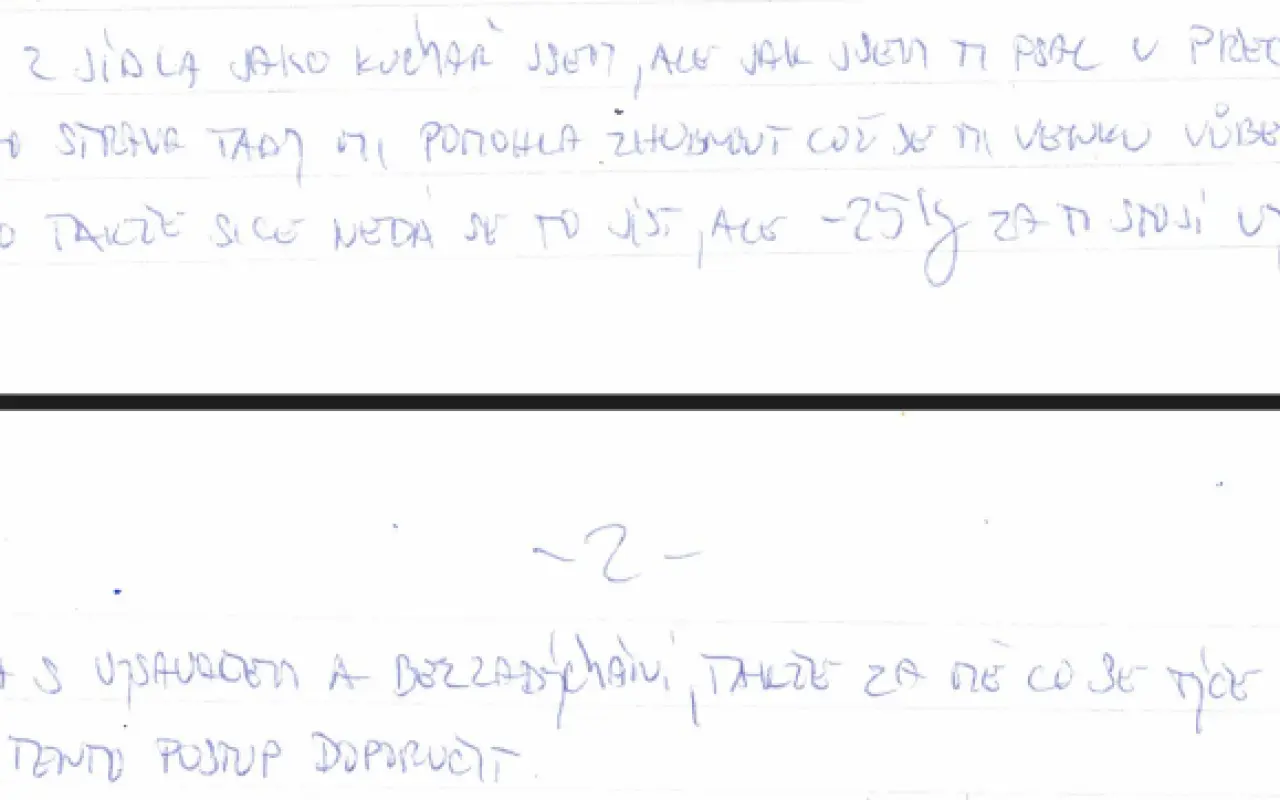 Z JÍDLA JAKO KUCHAŘ JSEM, ALE JAK JSEM TI PSAL V
STRAVA TADY MI POMOHLA ZHUBNOUT COŽ SE MI VENKU
TAKŽE SICE NEDÁ SE TO JÍST, ALE -25 kg ZA TI STOJÍ
-2-
S VYSAVAČEM A BEZ ZADÝCHÁNÍ, TAKŽE ZA MĚ CO SE TÝČE
TENTO POSTUP DOPORUČIT.